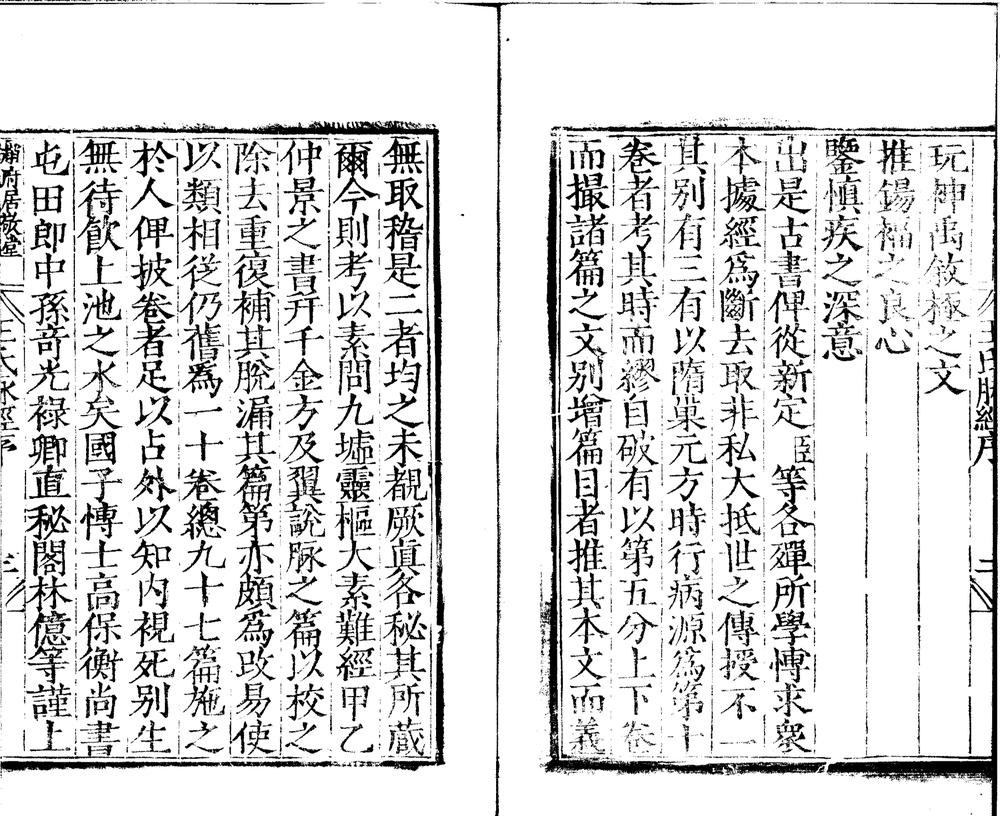 王氏脉經序
二
玩神禹敘極之文
推錫福之良心
鑒慎疾之深意
出是古書俾從新定臣等各殫所學博求衆
本據經爲斷去取非私大抵世之傳授不一
其别有三有以隋巢元方時行病源爲第十
卷者考其時而繆自破有以第五分上下卷
而撮諸篇之文别增篇目者推其本文而義
無取稽是二者均之未覩厥真各秘其所蔵
爾今則考以素問九墟靈樞太素難經甲乙
仲景之書并千金方及翼說脉之篇以校之
除去重復補其脫漏其篇第亦頗爲改易使
以類相從仍舊爲一十卷總九十七篇施之
於人俾披卷者足以占外以知内視死别生
無待飲上池之水矣國子博士高保衡尚書
屯田郎中孫奇光禄卿直秘閣林億等謹上
府居敬堂
王氏脉經序
三